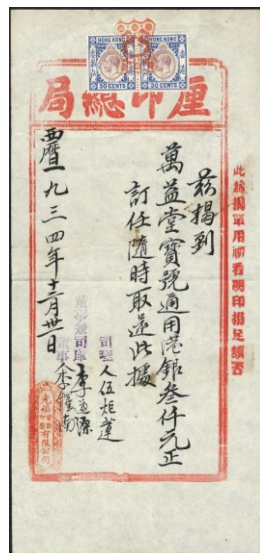 HONG KONG HONG KONG
30 CENTS 30 CENTS
局總印厘
此給揭單用初看明印揭足額否
茲揭到
萬益堂寶號通用港銀叁仟元正
訂任隨時取還此據
司理人伍炬蓮
董事兼司庫李
董事李
西曆一九三四年十二月卅一日
有限公司